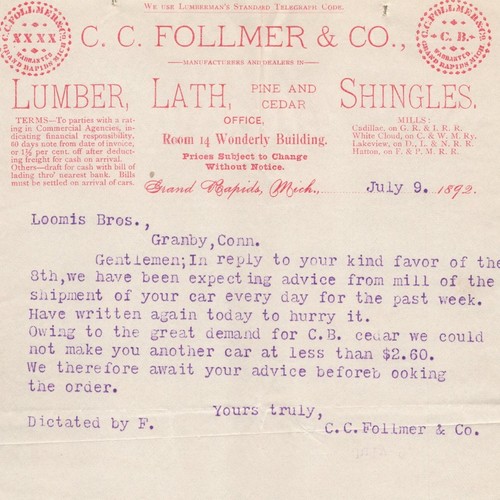 We use Lumberman's Standard Telegraph Code.
C.C.FOLLMER & CO. XXXX WARRANTED GRAND RAPIDS MICH
C.C.FOLLMER & CO. C.B. WARRANTED GRAND RAPIDS MICH
C. C. FOLLMER & CO.,
MANUFACTURERS AND DEALERS IN
LUMBER, LATH, PINE AND CEDAR SHINGLES.
TERMS—To parties with a rating in Commercial Agencies, indicating financial responsibility, 60 days note from date of invoice, or 1½ per cent. off after deducting freight for cash on arrival. Others—draft for cash with bill of lading thro' nearest bank. Bills must be settled on arrival of cars.
OFFICE,
Room 14 Wonderly Building.
Prices Subject to Change
Without Notice.
MILLS:
Cadillac, on G. R. & I. R. R.
White Cloud, on C. & W. M. Ry.
Lakeview, on D., L. & N. R. R.
Hutton, on F. & P. M. R. R.
Grand Rapids, Mich., July 9. 1892.
Loomis Bros.,
Granby,Conn.
Gentlemen;In reply to your kind favor of the
8th,we have been expecting advice from mill of the
shipment of your car every day for the past week.
Have written again today to hurry it.
Owing to the great demand for C.B. cedar we could
not make you another car at less than $2.60.
We therefore await your advice beforeb ooking
the order.
Yours truly,
Dictated by F. C.C.Follmer & Co.